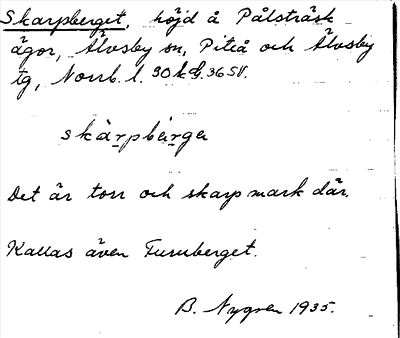 Skarpberget, höjd å Pålsträsk
ägor, Älvsby sn, Piteå och Älvsby
tg, Norrb. l. 30 k d. 36 SV.
skàrpbä́rge
Det är torr och skarp mark där.
Kallas även Furuberget.
B. Nygren 1935.